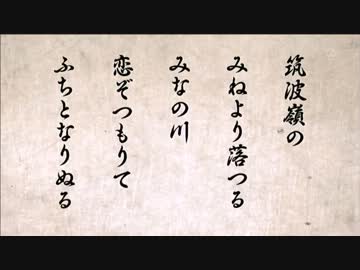 筑波嶺の
みねより落つる
みなの川
恋ぞつもりて
ふちとなりぬる